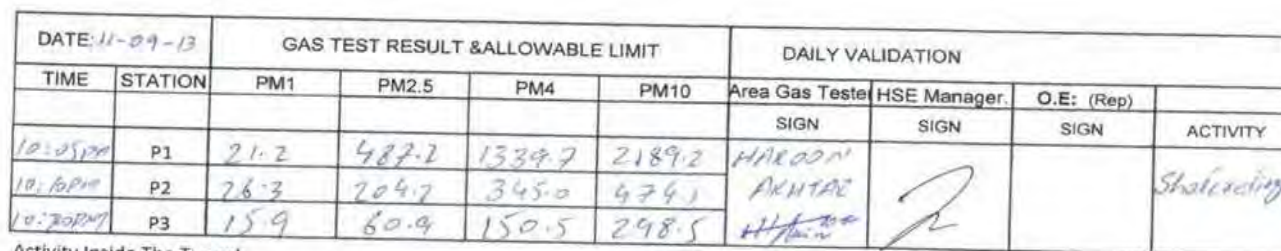 DATE: 11-09-13 GAS TEST RESULT &ALLOWABLE LIMIT DAILY VALIDATION
TIME STATION PM1 PM2.5 PM4 PM10 Area Gas Tester HSE Manager. O.E: (Rep)
SIGN SIGN SIGN ACTIVITY
10:05pm P1 21.2 487.2 1339.7 2189.2 HAROON
P2 26.3 204.2 345.0 474.1 AKHTAR
P3 15.9 60.9 150.5 298.5
Activity Inside The